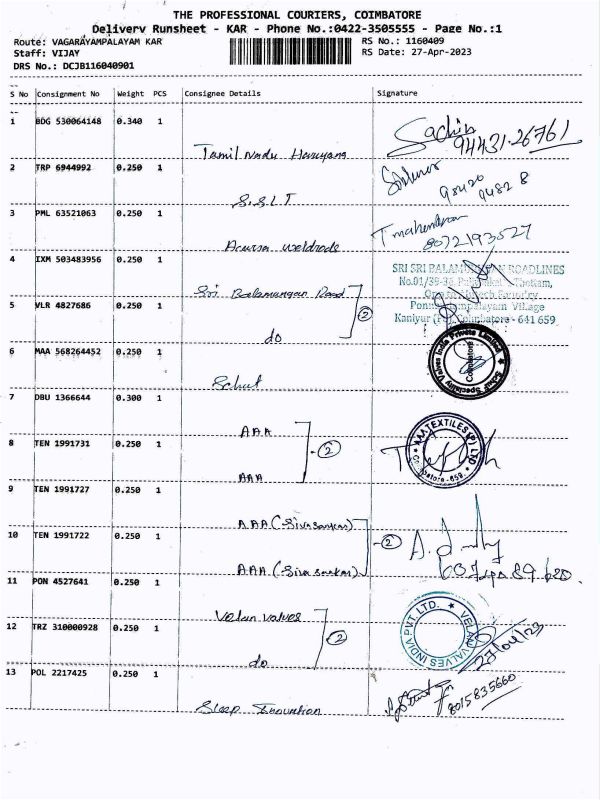 THE PROFESSIONAL COURIERS, COIMBATORE
Delivery Runsheet - KAR - Phone No.:0422-3505555 - Page No.:1
Route: VAGARAYAMPALAYAM KAR RS No.: 1160409
Staff: VIJAY RS Date: 27-Apr-2023
DRS No.: DCJB116040901
S No Consignment No Weight PCS Consignee Details Signature
1 BDG 530064148 0.340 1
Sachin
Tamil Nadu 94431-26761
2 TRP 6944992 0.250 1
S.S.L.T
3 PML 63521063 0.250 1
8072193527
4 IXM 503483956 0.250 1
SRI SRI BALAMURUGAN ROADLINES
Sri Balamurugan Road
5 VLR 4827686 0.250 1
Village
Kaniyur Coimbatore - 641 659
do 2
6 MAA 568264452 0.250 1
Schuf Specialty Valves India Private Limited
Coimbatore
Schuf
7 DBU 1366644 0.300 1
AAA
AAA TEXTILES (P) LTD
8 TEN 1991731 0.250 1
AAA 2
Coimbatore-659.
9 TEN 1991727 0.250 1
AAA (Sivasankar)
10 TEN 1991722 0.250 1
2
AAA (Sivasankar)
11 PON 4527641 0.250 1
Velan valves
VELAN VALVES INDIA PVT. LTD.
12 TRZ 310000928 0.250 1
2
do 27/04/23
13 POL 2217425 0.250 1
8015835660
Sleep Innovation